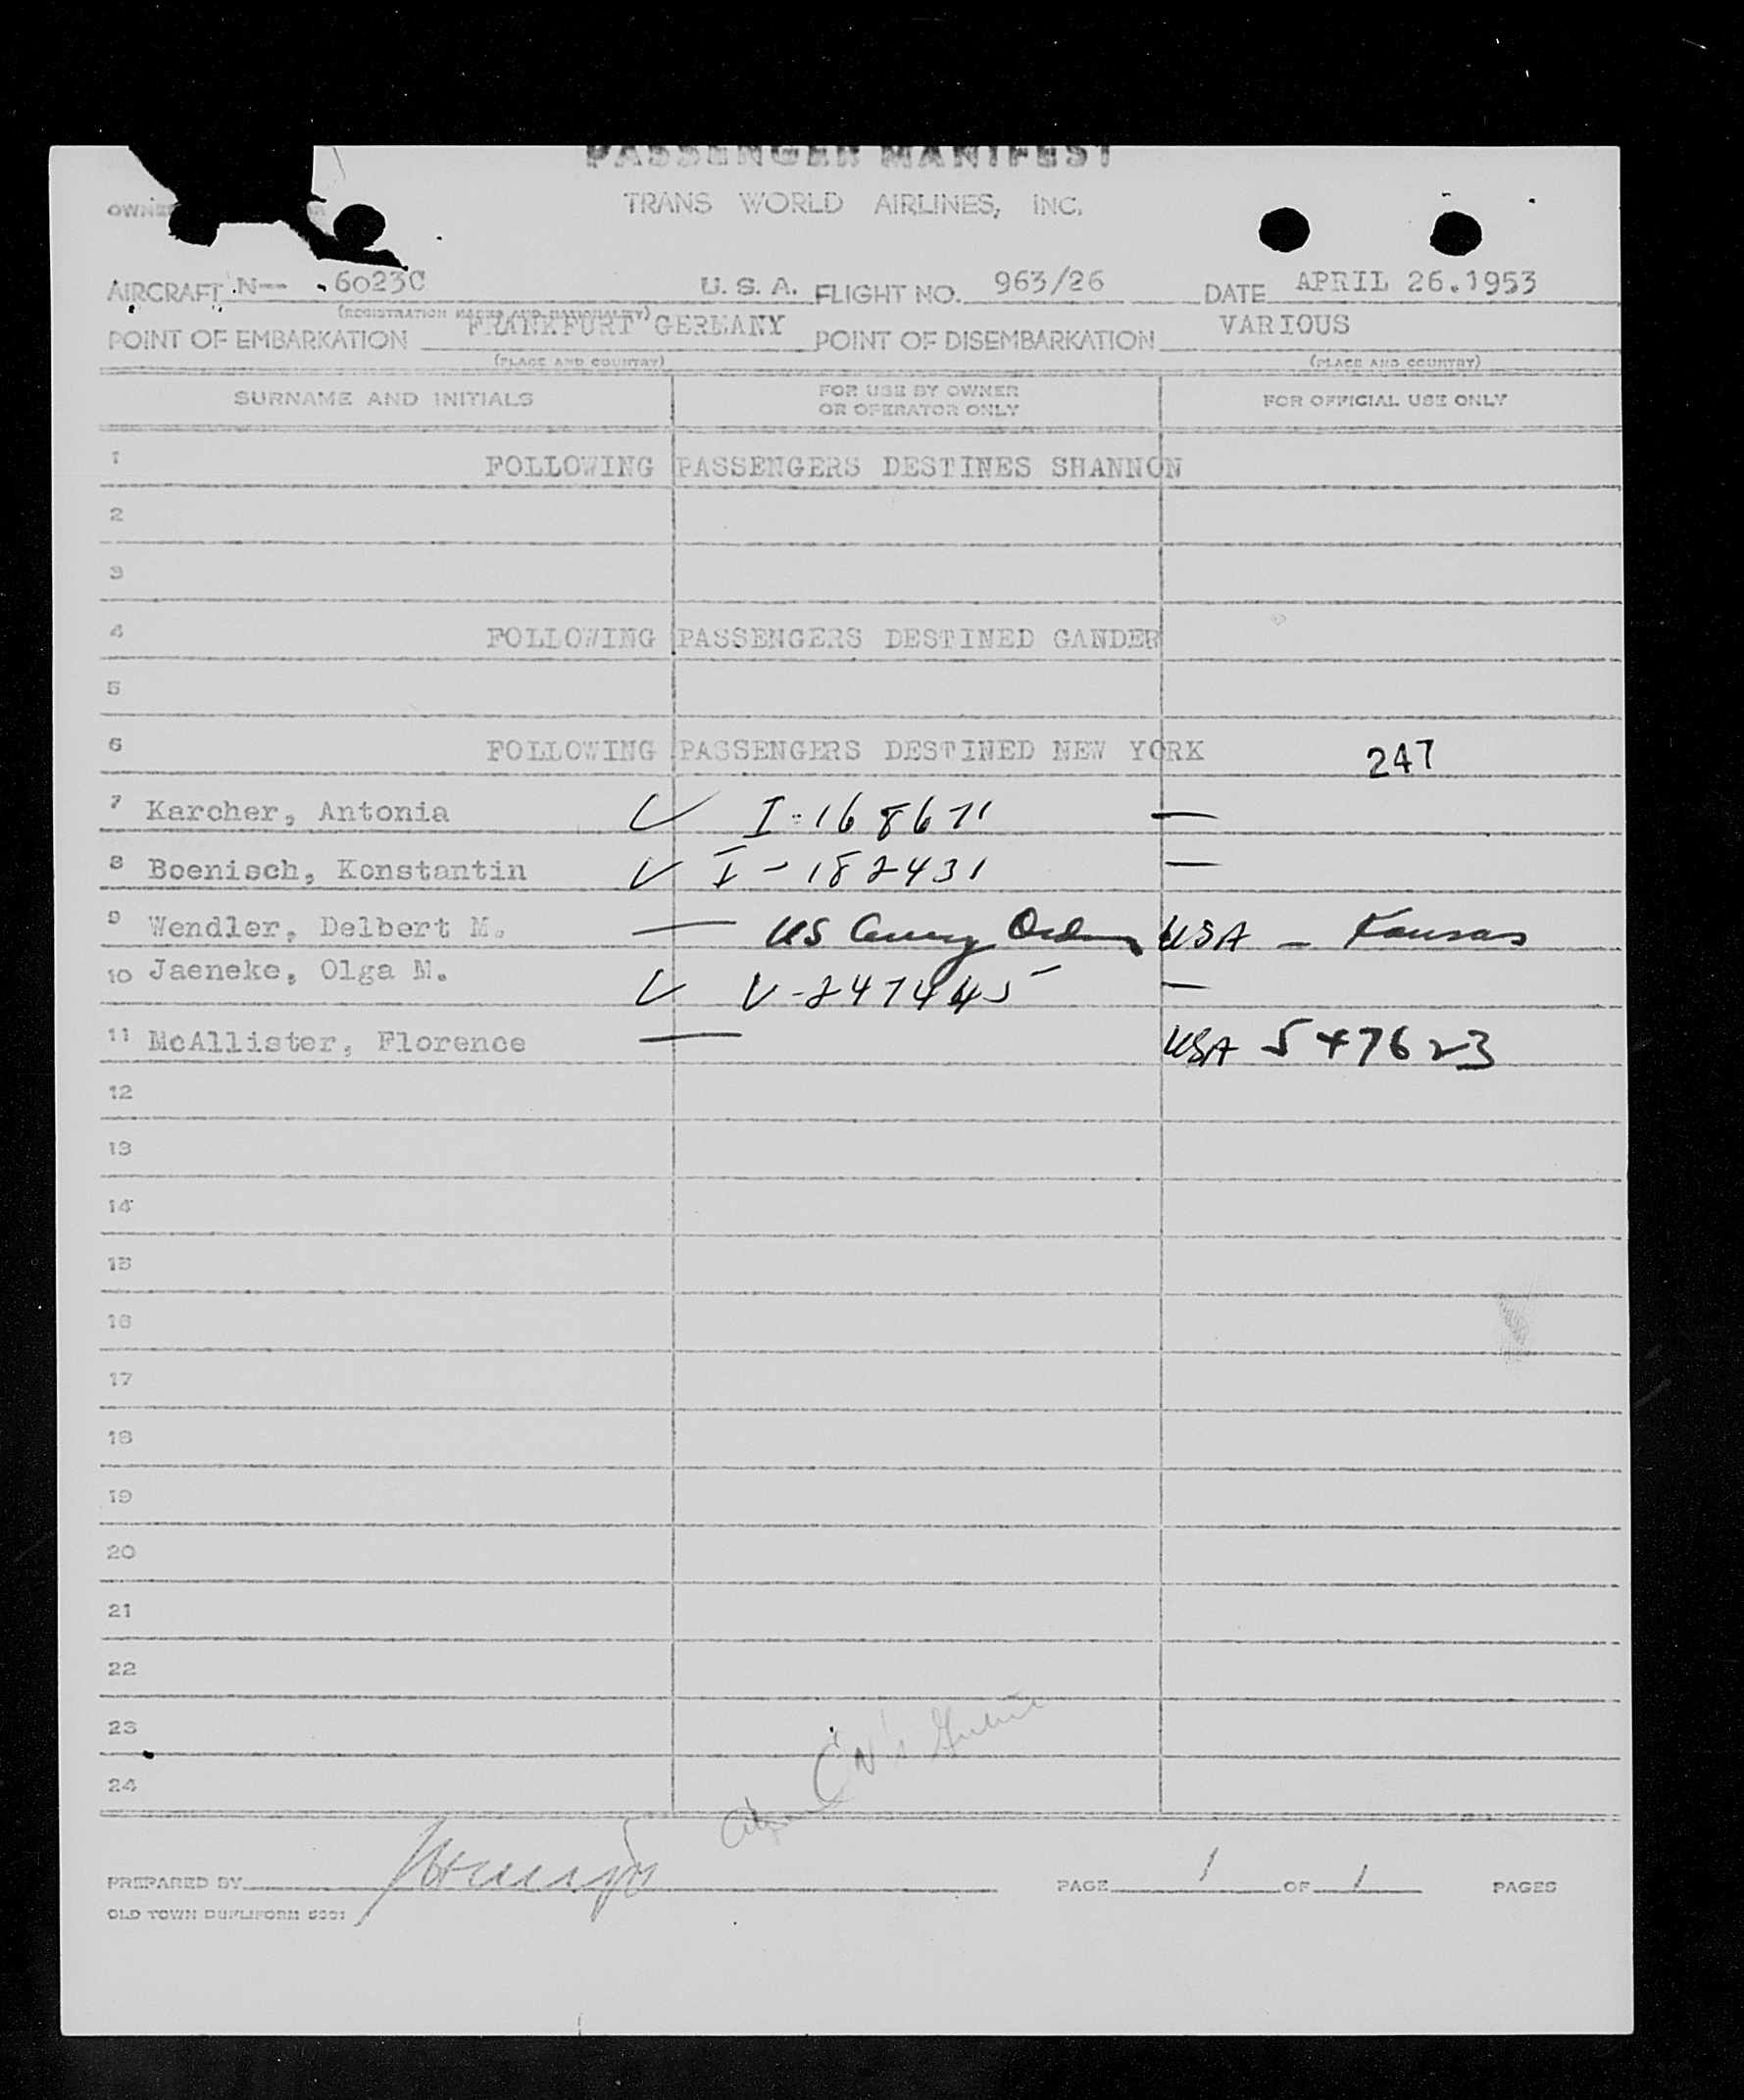 PASSENGER MANIFEST
TRANS WORLD AIRLINES, INC.
AIRCRAFT N-- 6023C U. S. A. FLIGHT NO. 963/26 DATE APRIL 26.1953
(REGISTRATION MARKS AND NATIONALITY)
POINT OF EMBARKATION FRANKFURT GERMANY POINT OF DISEMBARKATION VARIOUS
(PLACE AND COUNTRY) (PLACE AND COUNTRY)
SURNAME AND INITIALS FOR USE BY OWNER OR OPERATOR ONLY FOR OFFICIAL USE ONLY
1 FOLLOWING PASSENGERS DESTINES SHANNON
2
3
4 FOLLOWING PASSENGERS DESTINED GANDER
5
6 FOLLOWING PASSENGERS DESTINED NEW YORK 247
7 Karcher, Antonia ✓ I-168671 —
8 Boenisch, Konstantin ✓ I-182431 —
9 Wendler, Delbert M. — US Army Orders USA - Kansas
10 Jaeneke, Olga M. ✓ V-247445 —
11 McAllister, Florence — USA 547623
12
13
14
15
16
17
18
19
20
21
22
23
24
PREPARED BY PAGE 1 OF 1 PAGES
OLD TOWN DUPLIFORM